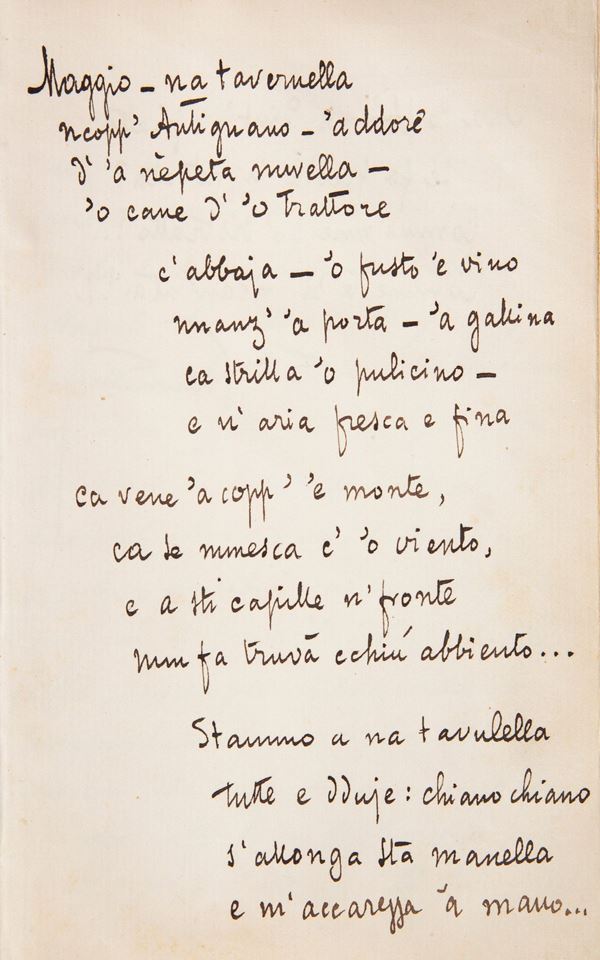 Maggio – na tavernella
ncopp' Antignano – 'addore
d' 'a nèpeta nuvella –
'o cane d' 'o trattore
c' abbaja – 'o fusto 'e vino
nnanz' 'a porta – 'a gallina
ca strilla 'o pulicino –
e n' aria fresca e fina
ca vene 'a copp' 'e monte,
ca se mmesca c' 'o viento,
e a sti capille n' fronte
nun fa truvà cchiù abbiento...
Stammo a na tavulella
tutte e dduje: chiano chiano
s' allonga sta manella
e m' accarezza 'a mano...